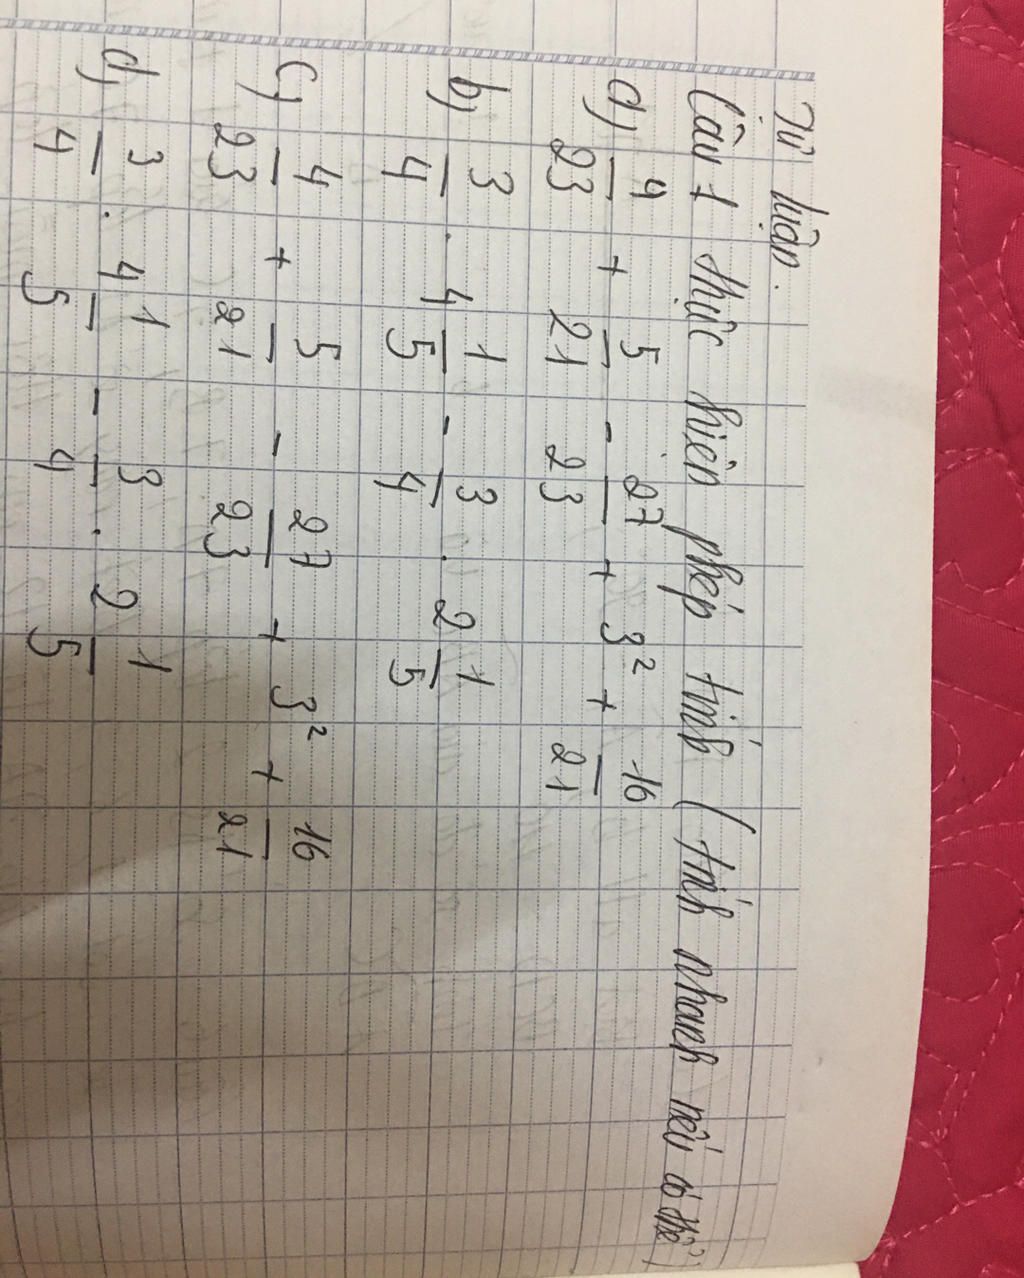 Tự luận.
Câu 1 thực hiện phép tính (tính nhanh nếu có thể)
a) 4/23 + 5/21 - 27/23 + 3² + 16/21
b) 3/4 . 4 1/5 - 3/4 . 2 1/5
c) 4/23 + 5/21 - 27/23 + 3² + 16/21
d) 3/4 . 4 1/5 - 3/4 . 2 1/5